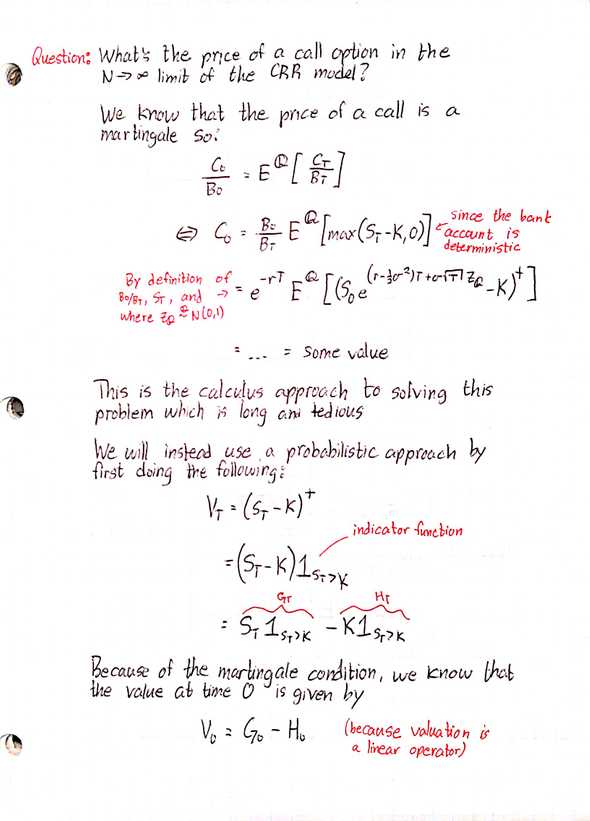 Question: What's the price of a call option in the
N→∞ limit of the CRR model?
We know that the price of a call is a
martingale so:
C₀/B₀ = E^ℚ[C_T/B_T]
⇔ C₀ = B₀/B_T E^ℚ[max(S_T-K,0)] ← since the bank
account is
deterministic
By definition of
B₀/B_T, S_T, and →
where Z_ℚ ~^ℚ N(0,1)
= e^{-rT} E^ℚ[(S₀e^{(r-½σ²)T+σ√T Z_ℚ}-K)⁺]
= ... = some value
This is the calculus approach to solving this
problem which is long and tedious
We will instead use a probabilistic approach by
first doing the following:
V_T = (S_T-K)⁺
indicator function
= (S_T-K)1_{S_T>K}
G_T H_T
= S_T 1_{S_T>K} - K1_{S_T>K}
Because of the martingale condition, we know that
the value at time 0 is given by
V₀ = G₀ - H₀ (because valuation is
a linear operator)